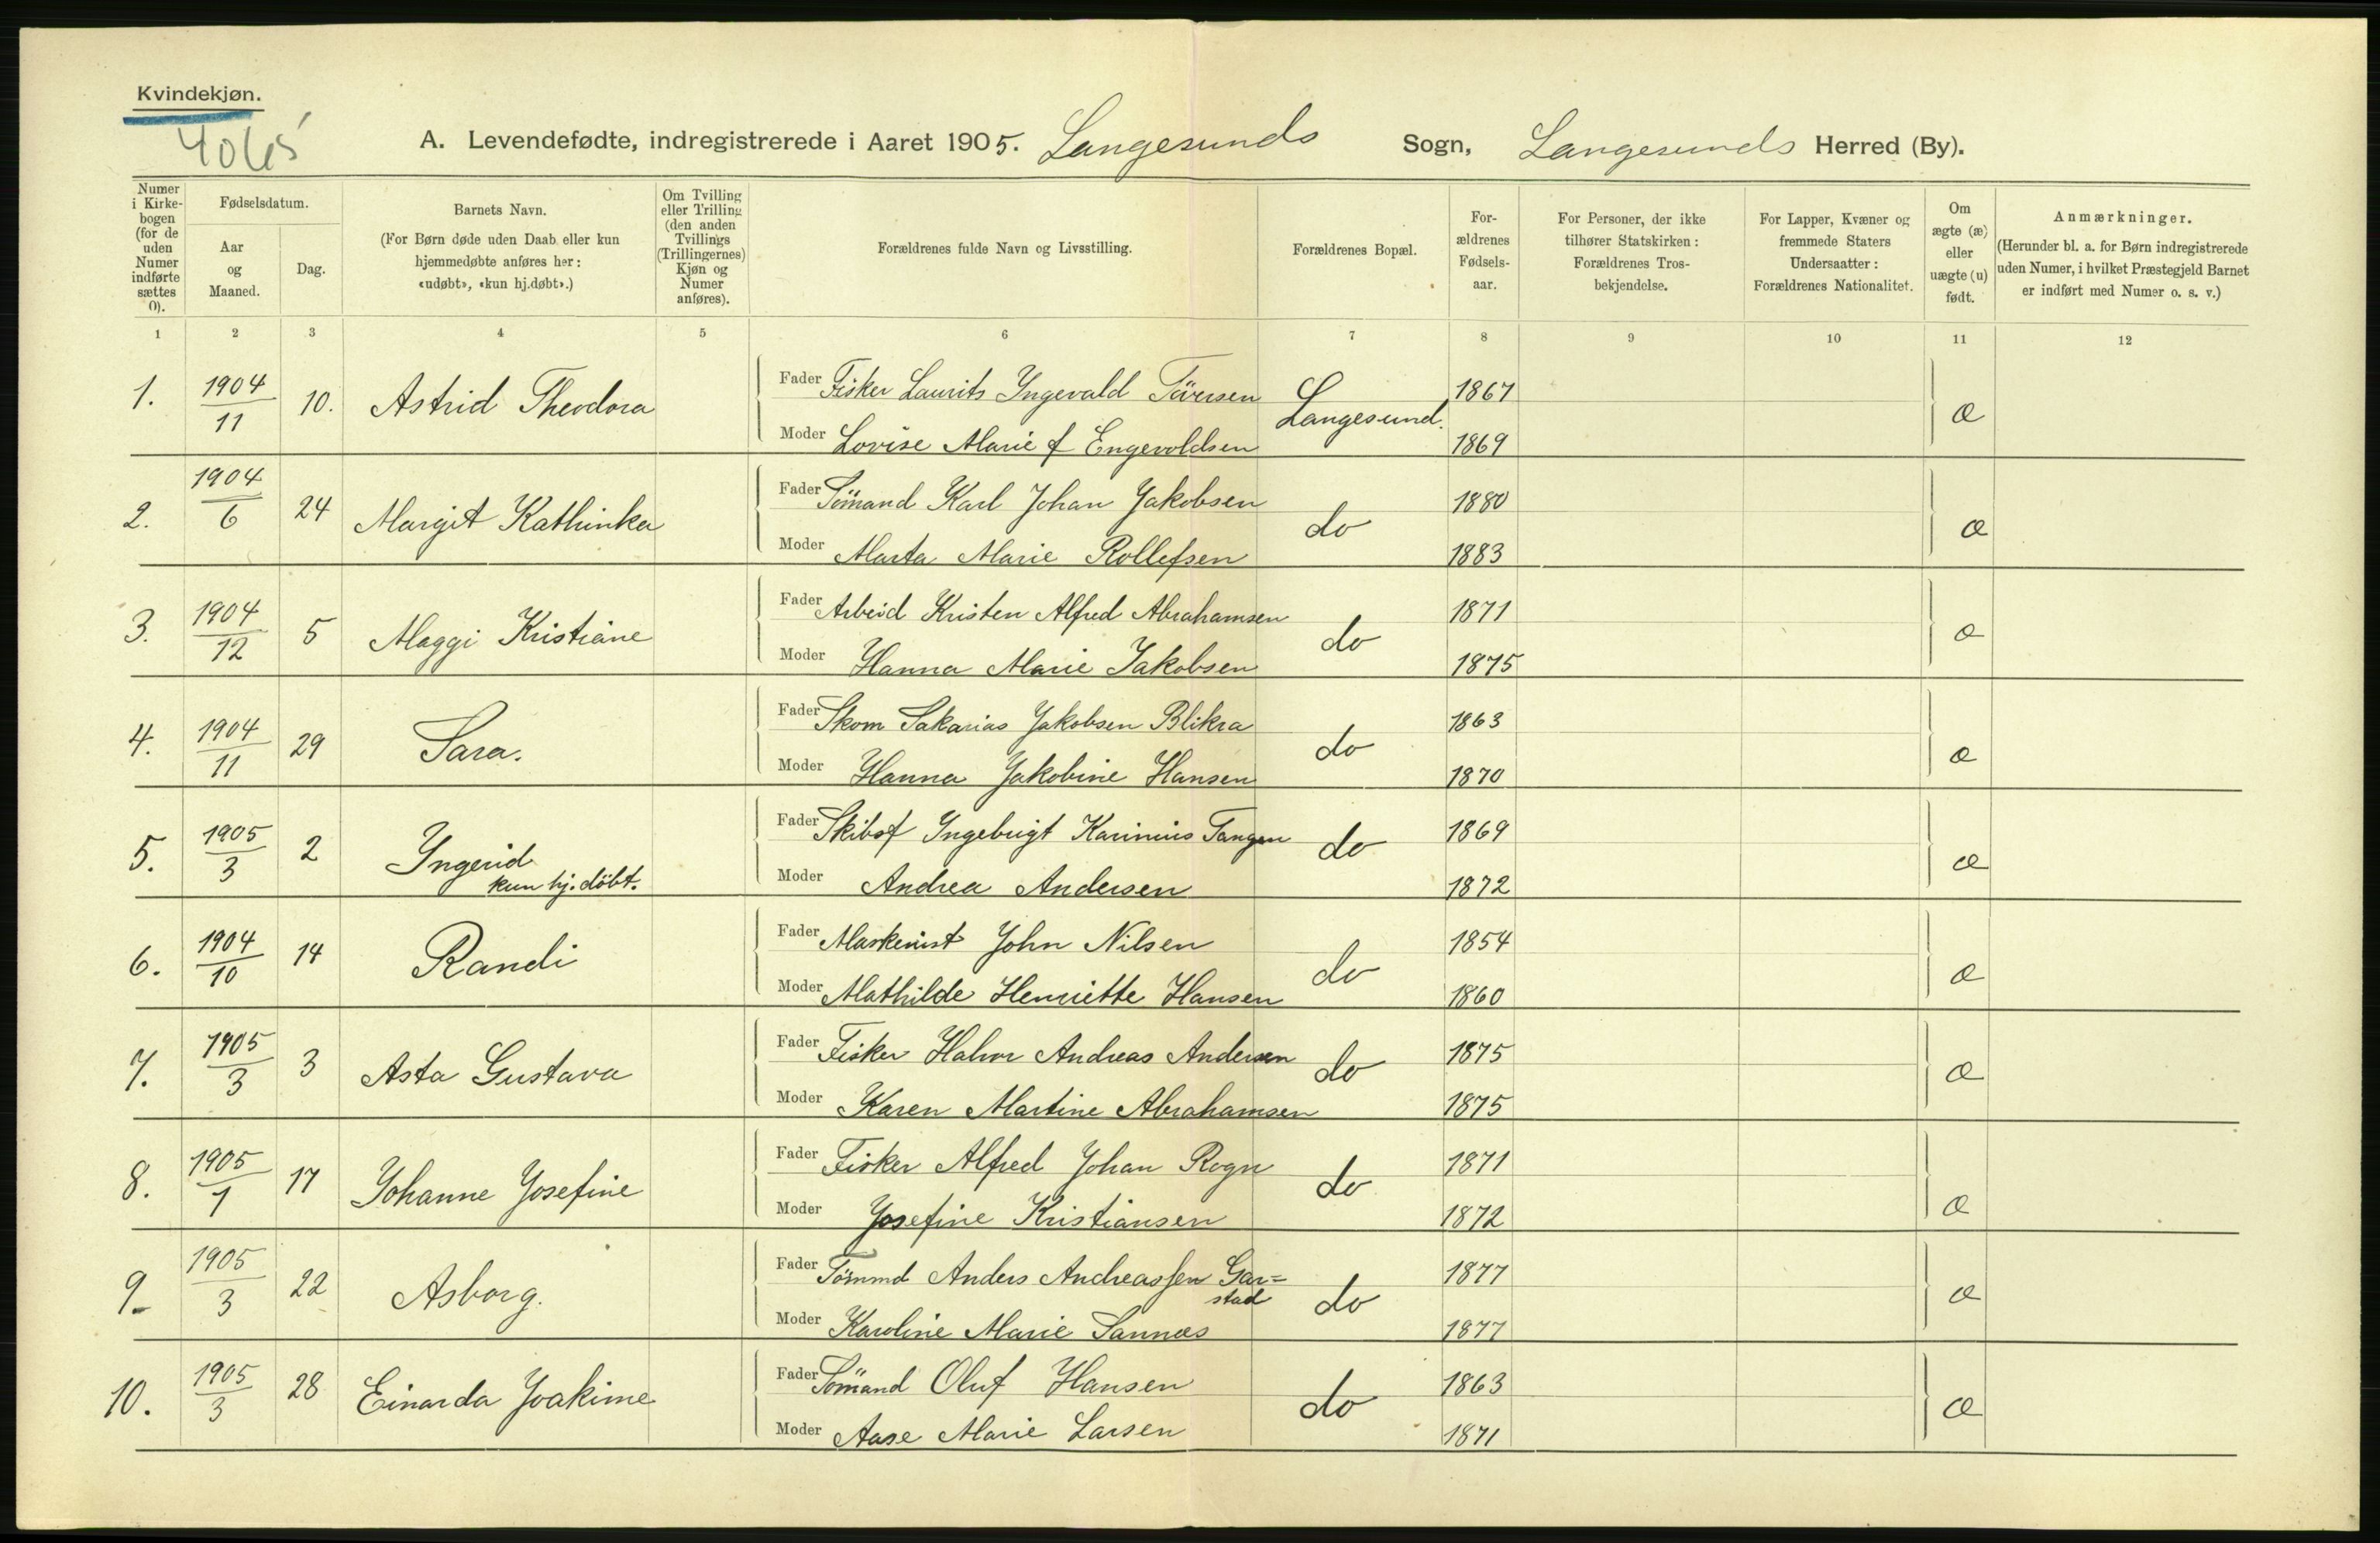 Kvindekjøn.
A. Levendefødte, indregistrerede i Aaret 1905. Langesunds Sogn, Langesunds Herred (By).
Numer i Kirke-bogen (for de uden Numer indførte sættes 0).
Fødselsdatum.
Aar og Maaned.
Dag.
Barnets Navn.
(For Børn døde uden Daab eller kun hjemmedøbte anføres her: «udøbt», «kun hj.døbt».)
Om Tvilling eller Trilling (den anden Tvillings (Trillingernes) Kjøn og Numer anføres).
Forældrenes fulde Navn og Livsstilling.
Forældrenes Bopæl.
For-ældrenes Fødsels-aar.
For Personer, der ikke tilhører Statskirken: Forældrenes Tros-bekjendelse.
For Lapper, Kvæner og fremmede Staters Undersaatter: Forældrenes Nationalitet.
Om ægte (æ) eller uægte (u) født.
Anmærkninger.
(Herunder bl. a. for Børn indregistrerede uden Numer, i hvilket Præstegjeld Barnet er indført med Numer o. s. v.)
1 2 3 4 5 6 7 8 9 10 11 12
1. 1904/11 10. Astrid Theodora Fader Fisker Laurits Yngevald Langesund. 1867 æ
Moder Lovise Marie f Engevoldsen 1869
2. 1904/6 24 Margit Kathinka Fader Sömand Karl Johan Jakobsen do 1880 æ
Moder Marta Marie Rollefsen 1883
3. 1904/12 5 Maggi Kristiane Fader Arbeid Kristen Alfred Abrahamsen do 1871 æ
Moder Hanna Marie Jakobsen 1875
4. 1904/11 29 Sara. Fader Skom Sakarias Jakobsen Blikra do 1863 æ
Moder Hanna Jakobine Hansen 1870
5. 1905/3 2 Yngerid Fader Skibsf Yngebrigt Karinius Tangen do 1869 æ
kun hj. döbt. Moder Andrea Andersen 1872
6. 1904/10 14 Randi Fader Maskinist John Nilsen do 1854 æ
Moder Mathilde Henriette Hansen 1860
7. 1905/3 3 Asta Gustava Fader Fisker Halvor Andreas Andersen do 1875 æ
Moder Karen Martine Abrahamsen 1875
8. 1905/1 17 Johanne Josefine Fader Fisker Alfred Johan Rogn do 1871 æ
Moder Josefine Kristiansen 1872
9. 1905/3 22 Asborg. Fader Anders Andreassen Gar=
stad do 1877 æ
Moder Karoline Marie Sannæs 1877
10. 1905/3 28 Einarda Joakime Fader Sömand Oluf Hansen do 1863 æ
Moder Aase Marie Larsen 1871